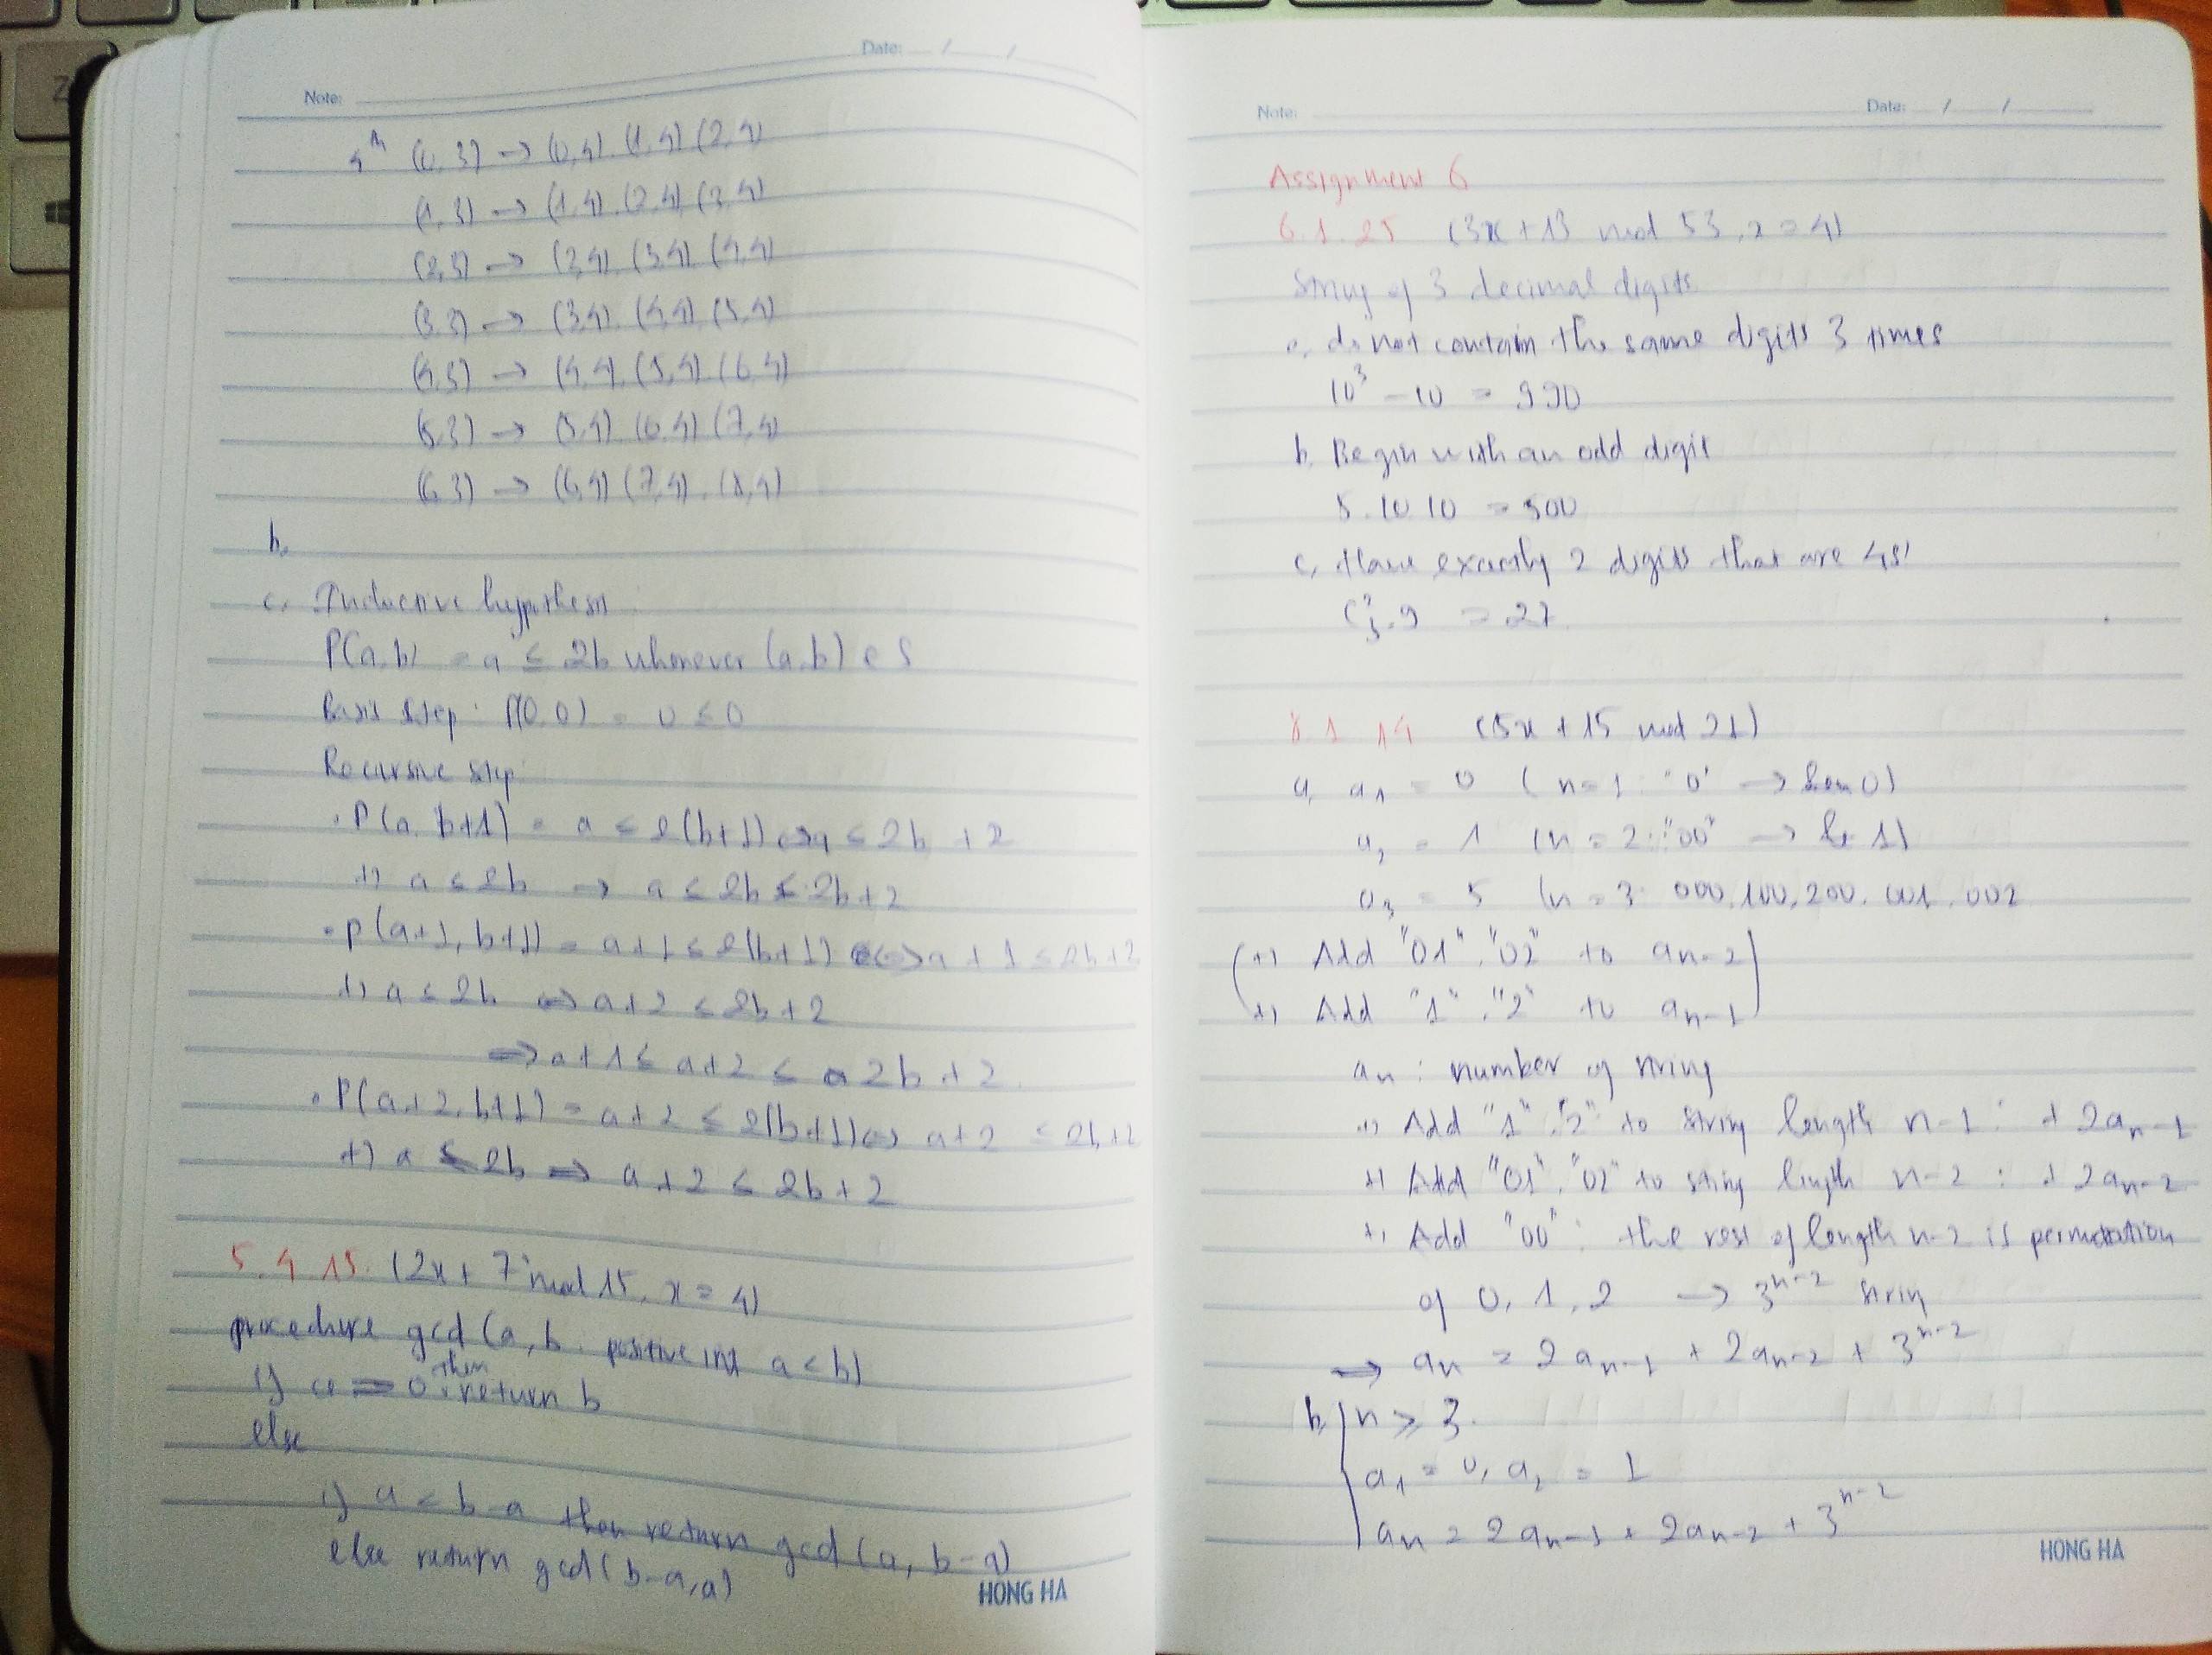 Date: / /
Note:
4th (0,3) → (0,4), (1,4) (2,4)
(1,3) → (1,4), (2,4), (3,4)
(2,3) → (2,4), (3,4), (4,4)
(3,3) → (3,4), (4,4), (5,4)
(4,3) → (4,4), (5,4) (6,4)
(5,3) → (5,4), (6,4) (7,4)
(6,3) → (6,4) (7,4), (8,4)
b.
c. Inductive hypothesis:
P(a,b) = a ≤ 2b whenever (a,b) ∈ S
Basis step: P(0,0) = 0 ≤ 0
Recursive step:
• P(a, b+1) = a ≤ 2(b+1) ⇔ a ≤ 2b + 2
+) a ≤ 2b → a ≤ 2b ≤ 2b+2
• P(a+1, b+1) = a+1 ≤ 2(b+1) ⇔ a + 1 ≤ 2b+2
+) a ≤ 2b ⇔ a+2 ≤ 2b+2
⇒ a+1 ≤ a+2 ≤ 2b+2.
• P(a+2, b+1) = a+2 ≤ 2(b+1) ⇔ a+2 ≤ 2b+2
+) a ≤ 2b ⇒ a+2 ≤ 2b+2
5.4.15. (2x + 7 mod 15, x = 4)
procedure gcd (a, b: positive int a < b)
if a = 0 then return b
else
if a < b-a then return gcd (a, b-a)
else return gcd (b-a, a)
HONG HA
Note: Date: / /
Assignment 6
6.1.25 (3x + 13 mod 53, x = 4)
String of 3 decimal digits
a, do not contain the same digits 3 times
10³ - 10 = 990
b, Begin with an odd digit
5.10.10 = 500
c, Have exactly 2 digits that are 4s'
C²₃.9 = 27
8.1.14 (5x + 15 mod 21)
a, a₁ = 0 (n = 1: "0" → 0)
a₂ = 1 (n = 2: "00" → 1)
a₃ = 5 (n = 3: 000, 100, 200, 001, 002
+) Add "01", "02" to aₙ₋₂
+) Add "1", "2" to aₙ₋₁
aₙ : number of string
+) Add "1", "2" to string length n-1 : + 2aₙ₋₁
+) Add "01", "02" to string length n-2 : + 2aₙ₋₂
+) Add "00" : the rest of length n-2 is permutation
of 0, 1, 2 → 3ⁿ⁻² string
→ aₙ = 2aₙ₋₁ + 2aₙ₋₂ + 3ⁿ⁻²
b, n ≥ 3.
a₁ = 0, a₂ = 1
aₙ = 2aₙ₋₁ + 2aₙ₋₂ + 3ⁿ⁻²
HONG HA